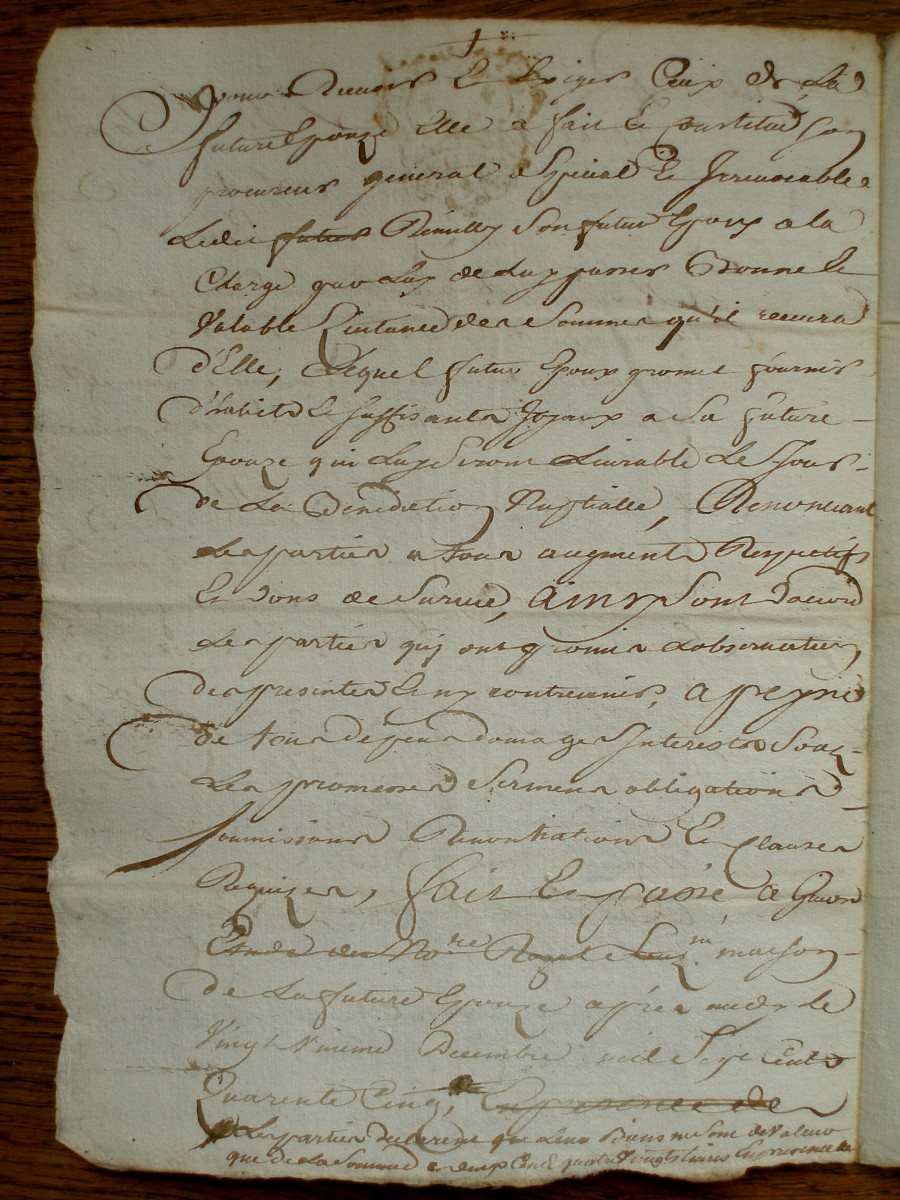 pour Recevoir Et Exiger Ceux de La d
future Epouze Elle a fait Et Constitué son
procureur general Special Et Irrevocable
Ledit futur Remilly Son futur Epoux a la
Charge par Luy de Luy passer Bonne Et
Valable Quittance des Sommes qu'il recevra
d'Elle, Lequel futur Epoux promet fournir
d'habits Et suffisants Joyaux a Sa future
Epouze qui Luy Seront Livrable Le Jour
de La Benediction Nuptialle, Renonceant
Les parties a tous augments Respectifs
Et dons de Survie, ainsy Sont d'accord
Les parties qui ont promis L'observation
des presentes Et ny contrevenir, a peyne
de tous depens domages Interests Souz
Les promesses Serments obligations
soumissions Renontiations Et Clauzes
Requizes, fait Et passé a
Etude du No.re Royal Souz.né maison
de La future Epouze après midy Le
Vingt Nineme Decembre mil Sept Cents
Quarente Cinq, En presence de
Les parties declarent que Leurs Biens ne Sont de Valeur
que de La Somme Cent quatre Vingts Livres En presence de